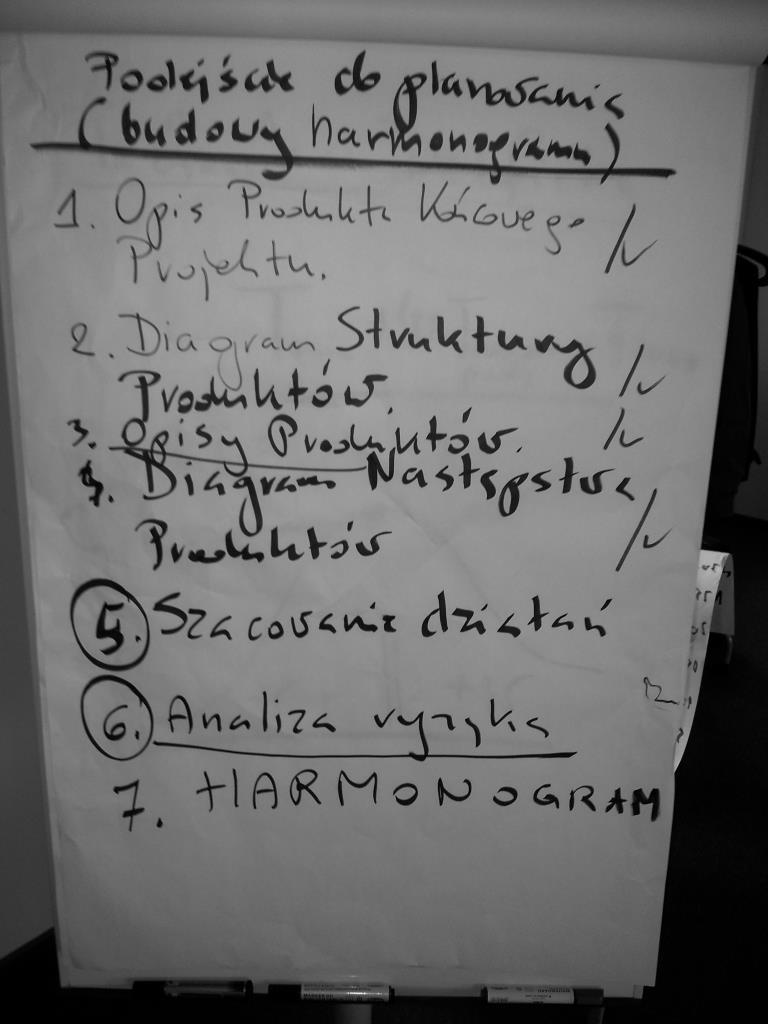 Podejście do planowania
(budowy harmonogramu)
1. Opis Produktu Końcowego
Projektu.
2. Diagram Struktury
Produktów.
3. Opisy Produktów.
4. Diagram Następstwa
Produktów
5. Szacowanie działań
6. Analiza ryzyka
7. HARMONOGRAM